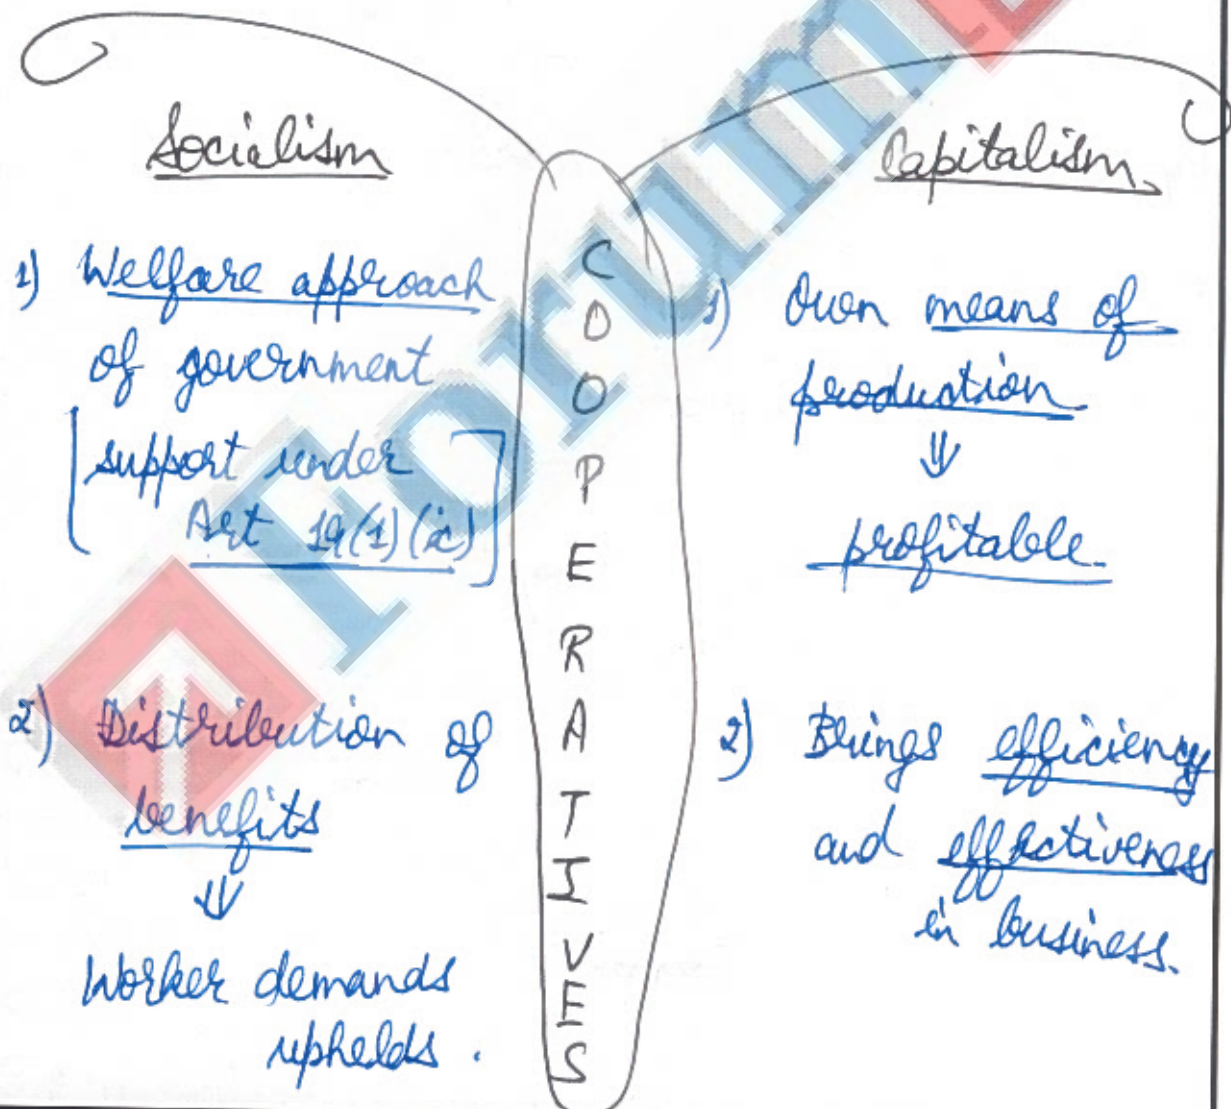 Socialism
1) Welfare approach
of government
[support under
Art 19(1)(c)]
2) Distribution of
benefits
⇓
Worker demands
upholds.
COOPERATIVES
Capitalism
1) Own means of
production
⇓
profitable.
2) Brings efficiency
and effectiveness
in business.
Forum